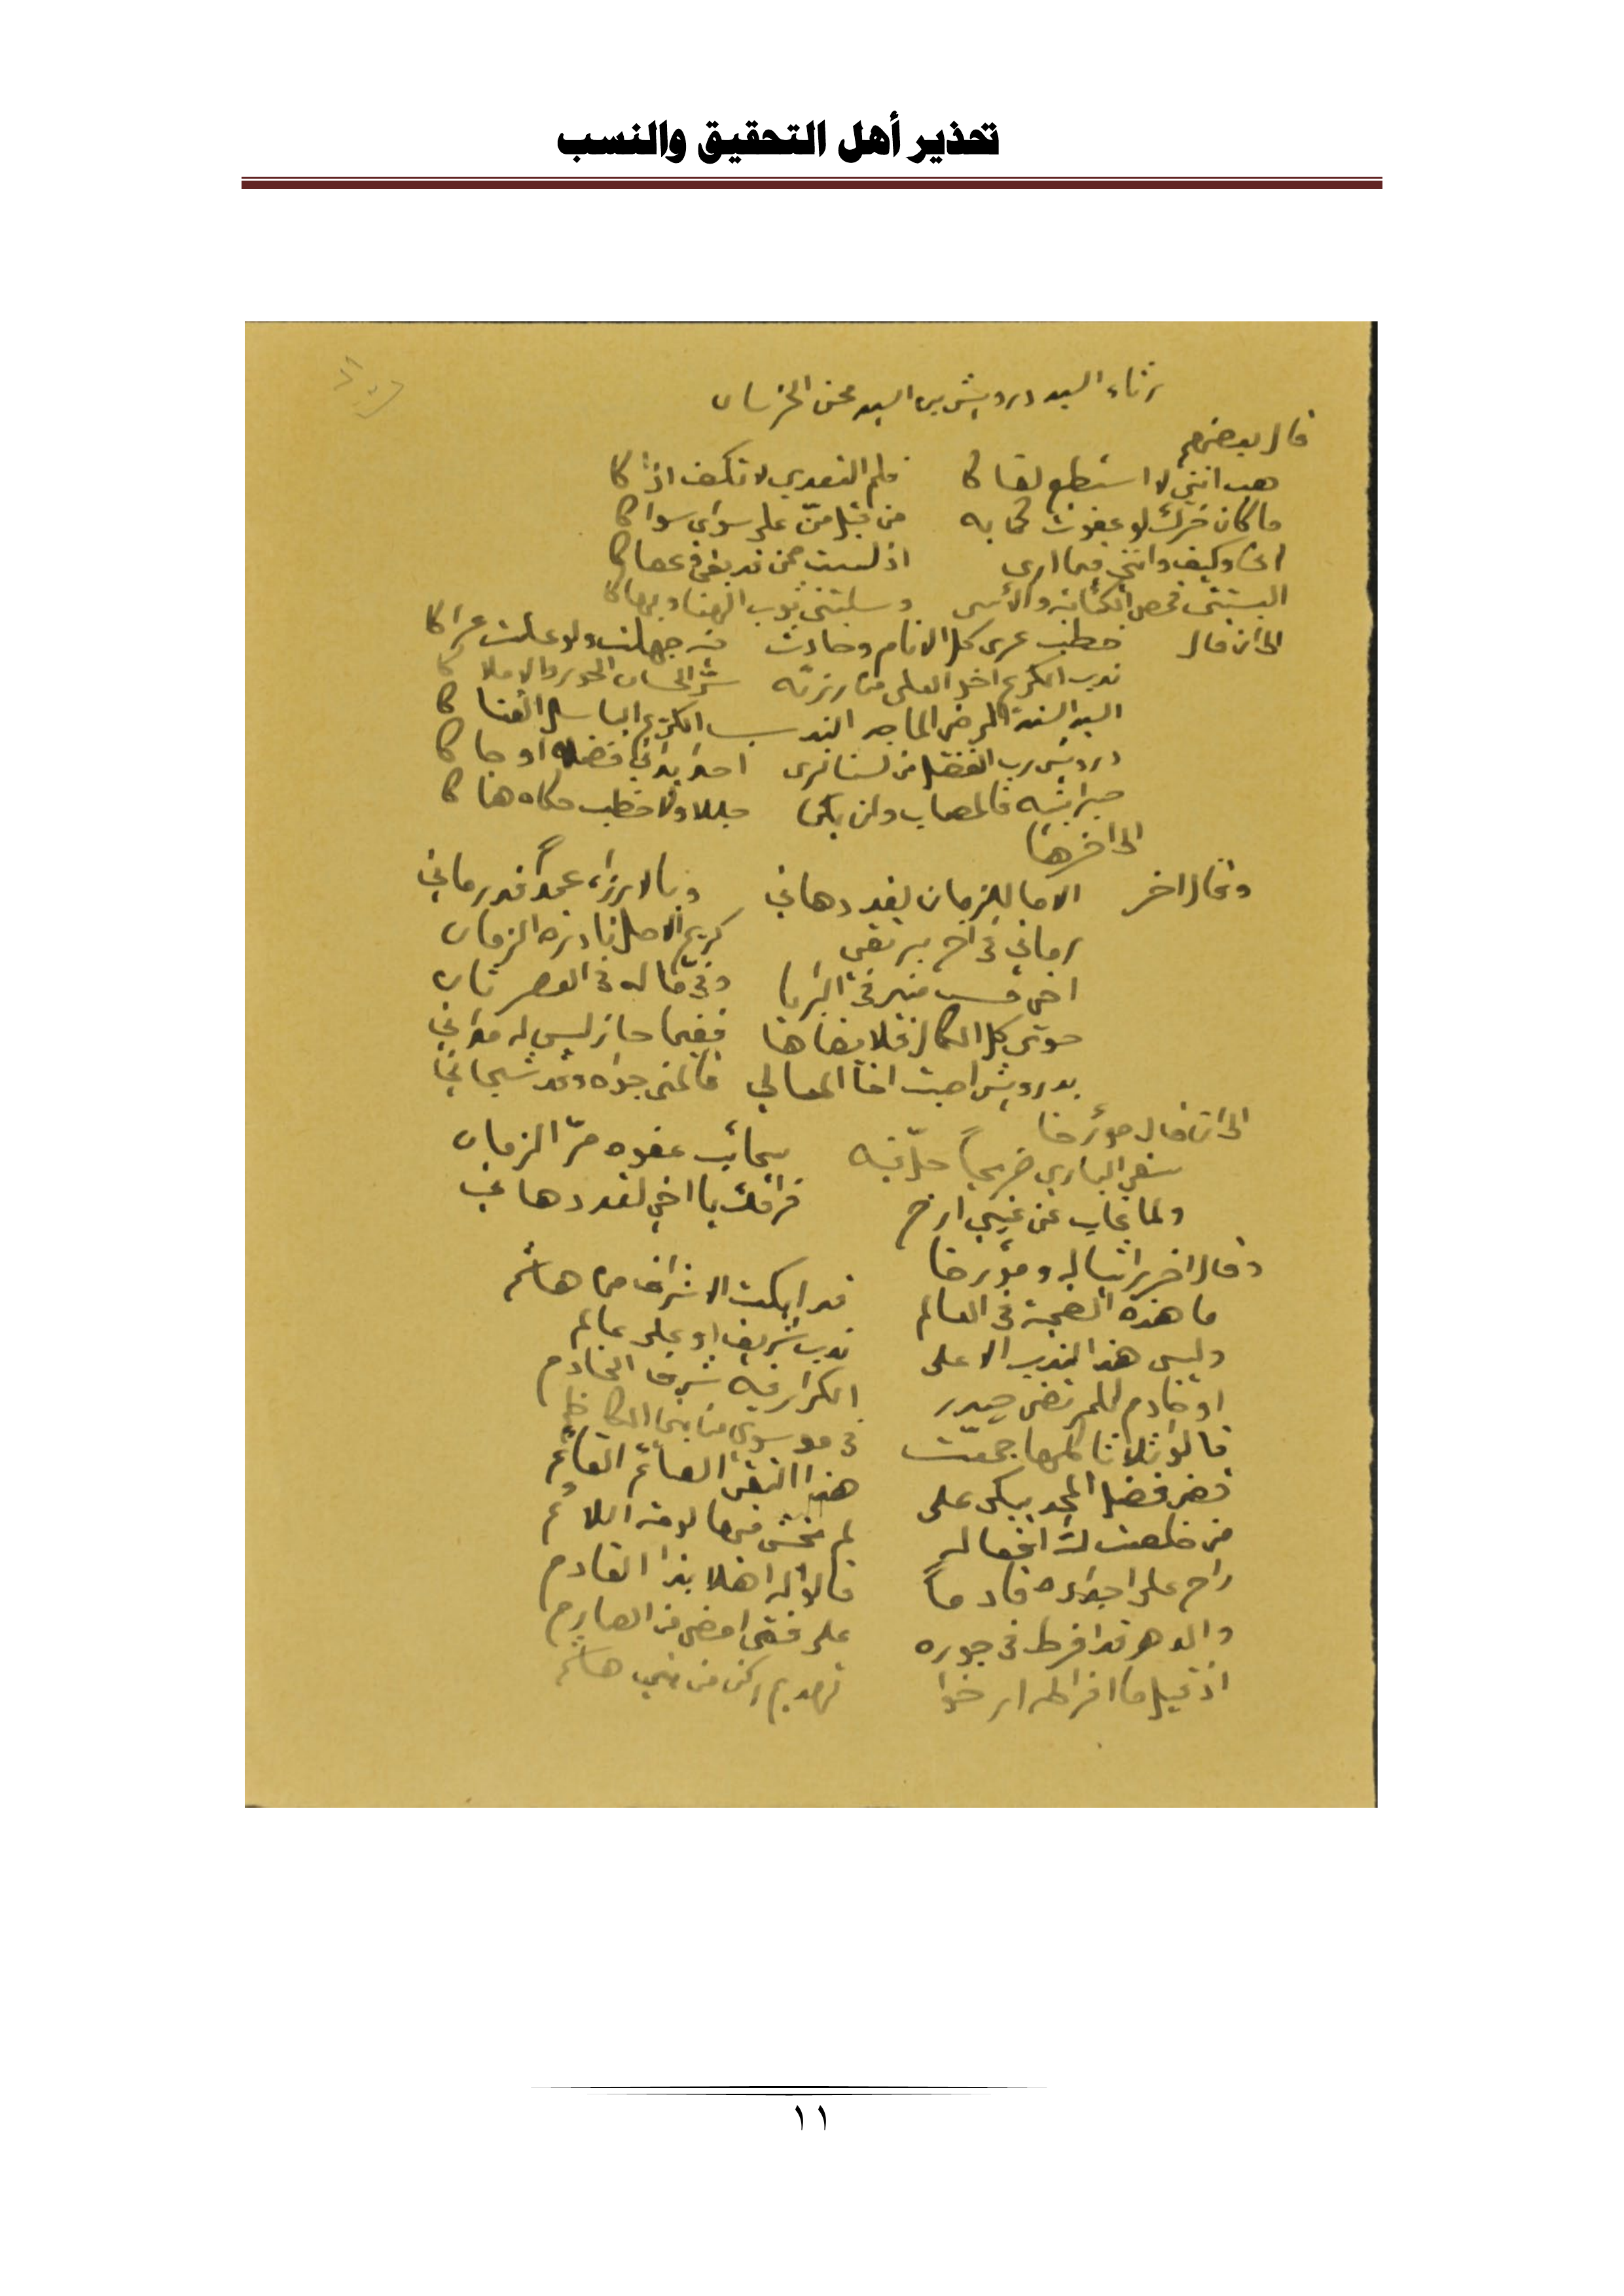 تحذير أهل التحقيق والنسب
رثاء السيد درويش بن السيد محسن الخرسان
قال بعضهم
هب انني لا استطيع لقاكا فلم التعدي لا تكف اذاكا
ما كان ضرك لو عفوت كما به من قبل من على سواي سواكا
وكيف وانني فيما ارى اذ لست ممن قد بغى في عصاكا
البستني قمص الكآبة والأسى وسلبتني ثوب الهنا
الى ان قال خطب عرى كل الانام وحادث
ندب الكريم اخو العلى من رزئه
السيد السند المرضى الماجد الندب الكريم الباسل
درويش رب الفضل من لسنا نرى احدا فضله او حاكا
فالمصاب وان يكن جللا ولا خطب حكاه هناكا
الى اخرها
وقال اخر الا ما للزمان لقد دهاني وبالارزاء عمداً قد رماني
رماني في اخ بر تقي كريم الاصل نادرة الزمان
اخي منير في البرايا وفي ما له في العصر ثان
حوى كل الكمال فلا يضاهى ففيما حاز ليس له مداني
بدرويش اصبت اخا المعالي
الى ان قال مؤرخا
سقى الباري ضريحاً حلّ فيه سحائب عفوه مرّ الزمان
ولما غاب عن عيني ارخ فراقك يا اخي لقد دهاني
وقال اخر راثيا له ومؤرخا
ما هذه الضجة في العالم قد ابكت الاشراف من هاشم
وليس هذا الندب الا على ندب شريف او على عالم
او خادم للمرتضى حيدر الكرار فيه شرف الخادم
قالوا ثلاثا كلها جمعت في موسوي من بني الكاظم
فضل المجد يبكي على هذا التقي الصائم القائم
من خلصت لله افعاله لم يخش فيها لومة اللائم
راح على اجداده قادماً قالوا له اهلا بذا القادم
والدهر قد افرط في جوره على فتى امضى من الصارم
اذ قيل ما افراطه ارخوا تهديم ركن من بني هاشم
١١